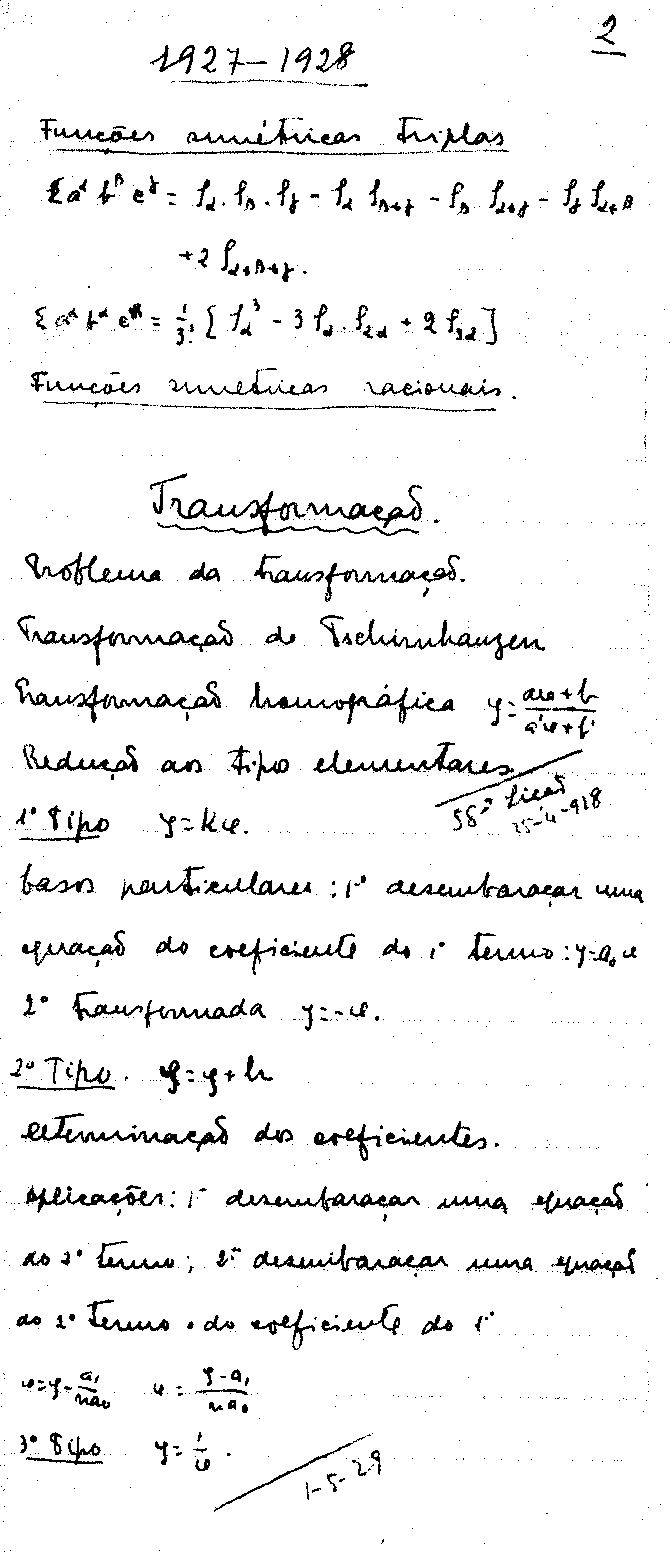 2
1927-1928
Funções simétricas triplas
Σ a^α b^β c^γ = S_α . S_β . S_γ - S_α S_β+γ - S_β S_α+γ - S_γ S_α+β
+ 2 S_α+β+γ.
Σ a^α b^α c^α = 1/3! [ S_α^3 - 3 S_α . S_2α + 2 S_3α ]
Funções simétricas racionais.
Transformação.
Problema da transformação.
Transformação de Tschirnhauzen
Transformação homográfica y = ax+b / a'x+b'
Redução aos tipo elementares
58ª lição
25-4-928
1º Tipo y = kx.
Casos particulares: 1º desembaraçar uma
equação do coeficiente do 1º termo: y=a₀x
2º transformada y = -x.
2º Tipo. x = y + h
Determinação dos coeficientes.
Aplicações: 1º desembaraçar uma equação
do 2º termo; 2º desembaraçar uma equação
do 2º termo e do coeficiente do 1º
x = y - a₁/na₀ x = y-a₁ / na₀
3º Tipo y = 1/x.
1-5-29